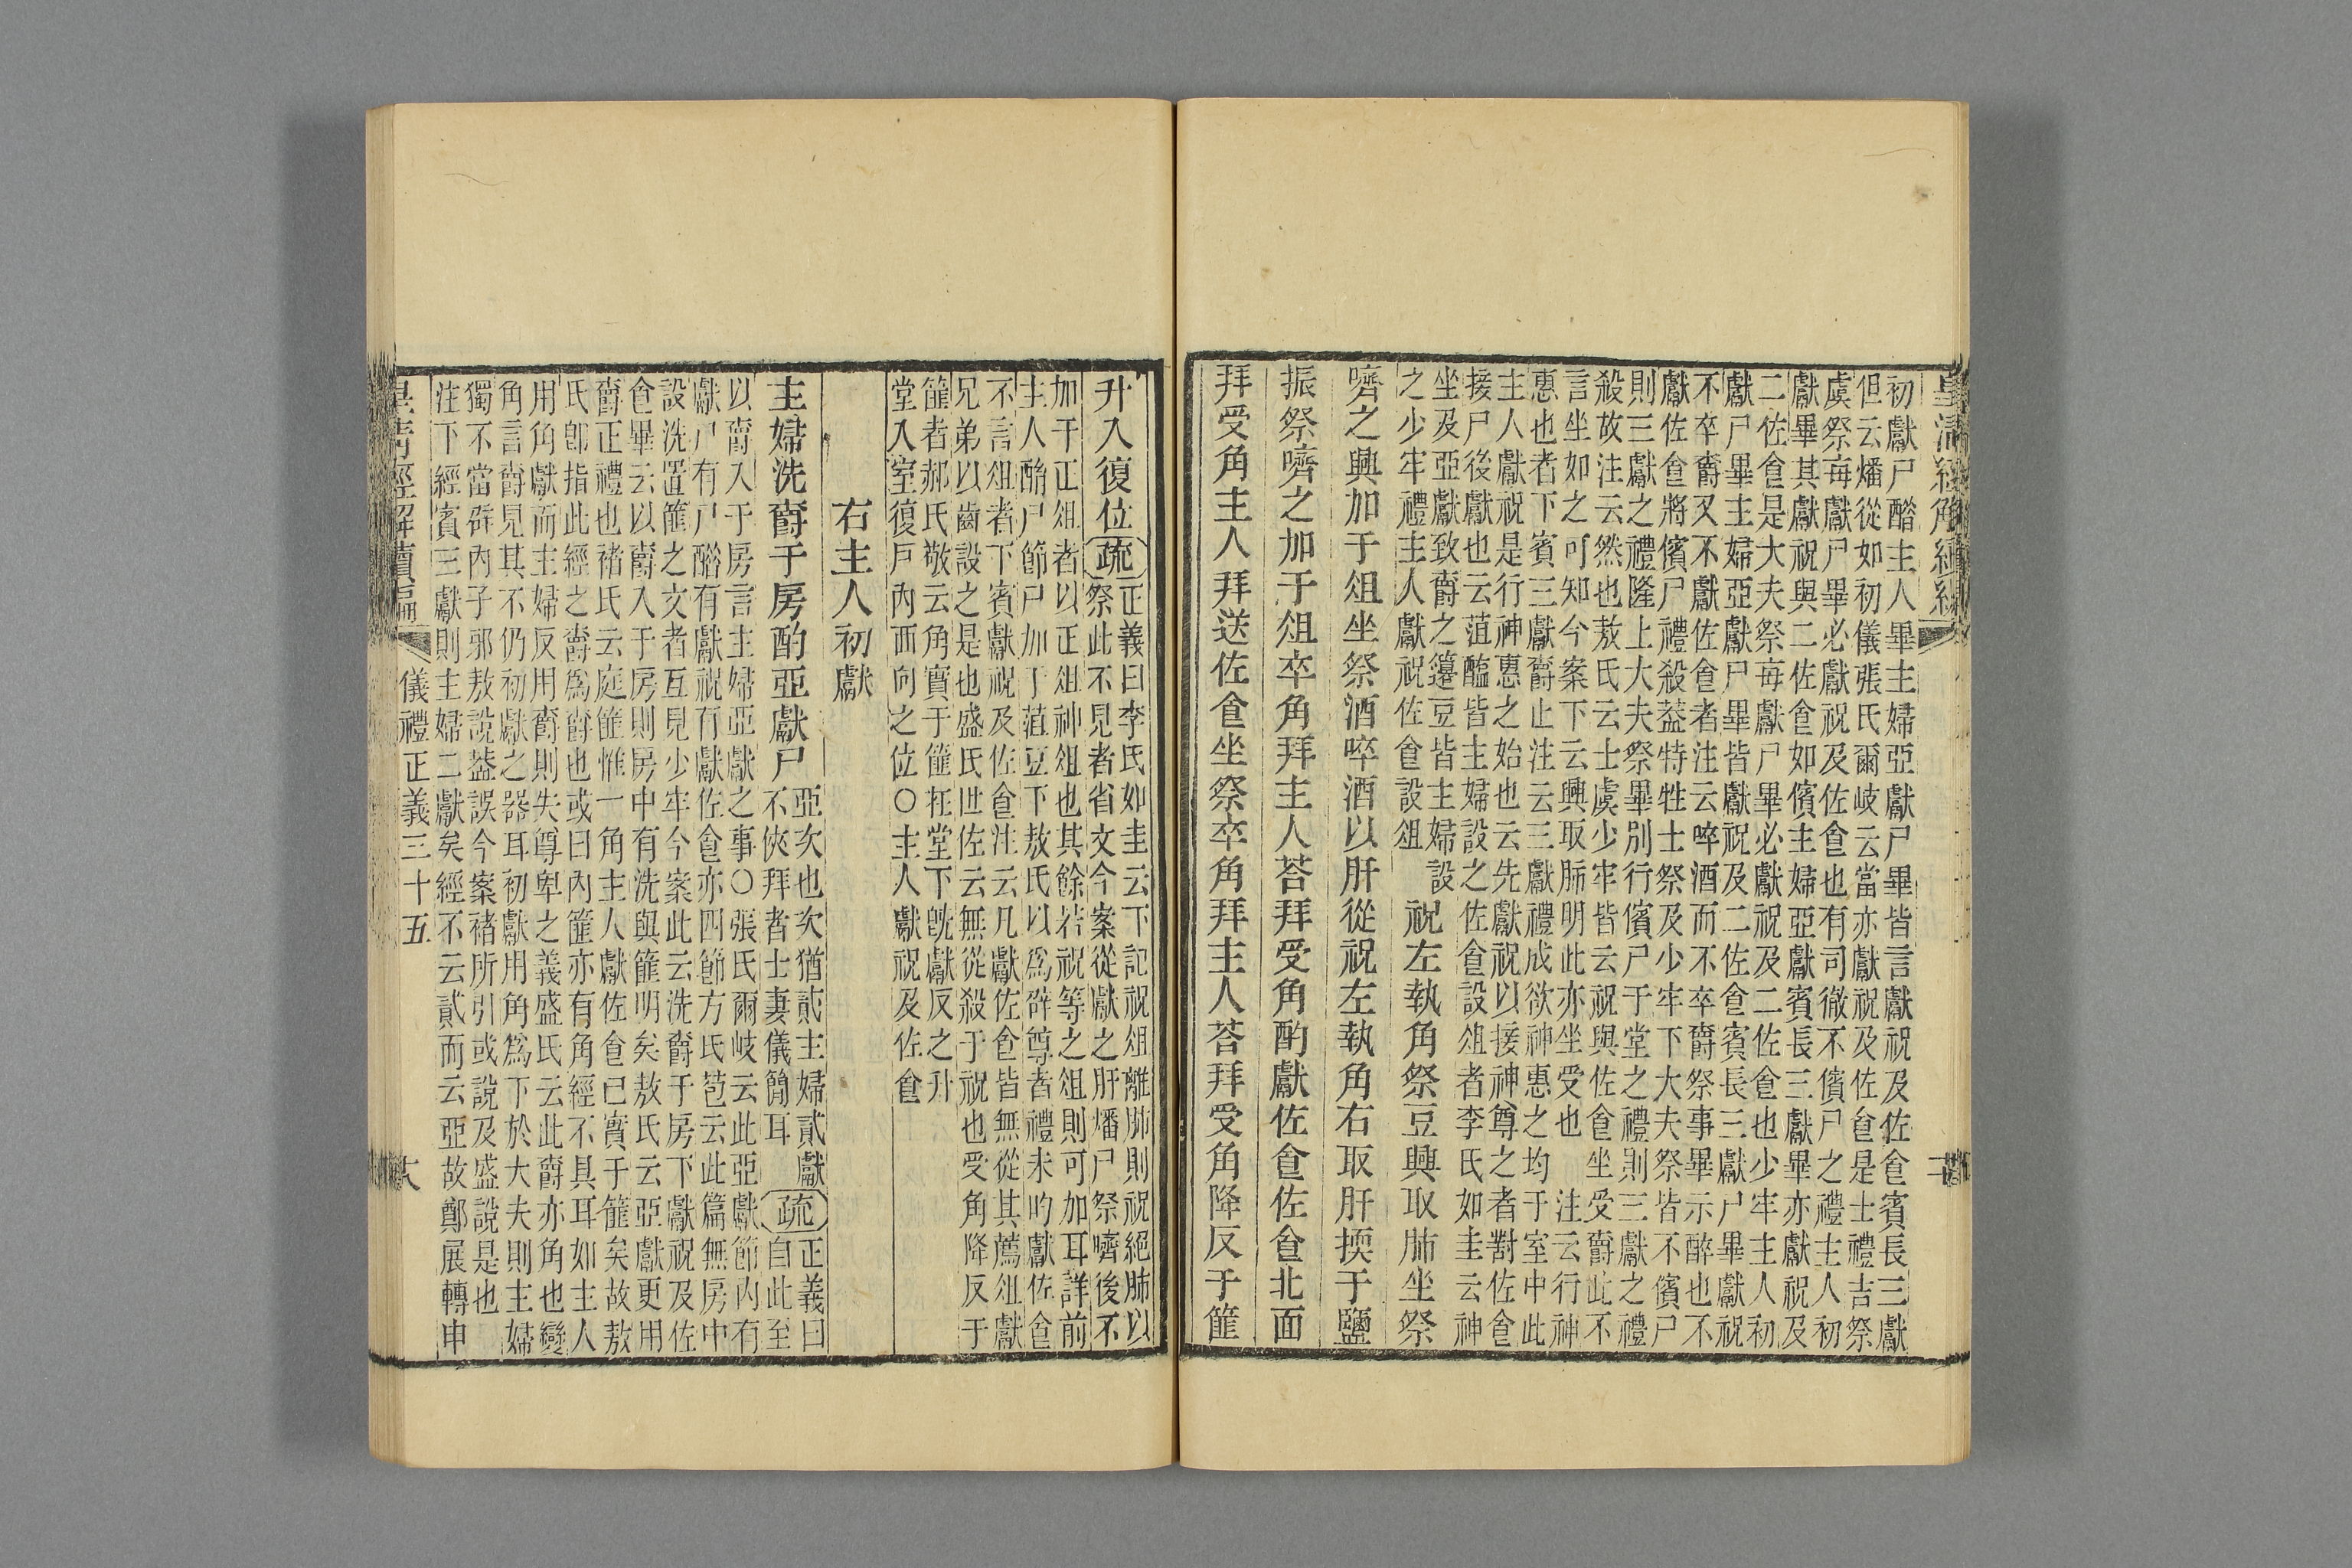 皇清經解續編
初獻尸酳主人畢主婦亞獻尸畢皆言獻祝及佐食賓長三獻
但云燔從如初儀張氏爾岐云當亦獻祝及佐食是士禮吉祭
虞祭每獻尸畢必獻祝及佐食也有司徹不儐尸之禮主人初
獻畢其獻祝與二佐食如儐主婦亞獻賓長三獻畢亦獻祝及
二佐食是大夫祭每獻尸畢必獻祝及二佐食也少牢主人初
獻尸畢主婦亞獻尸畢皆獻祝及二佐食賓長三獻尸畢獻祝
不卒爵又不獻佐食者注云啐酒而不卒爵祭事畢示醉也不
獻佐食將儐尸禮殺葢特牲士祭及少牢下大夫祭皆不儐尸
則三獻之禮隆上大夫祭畢別行儐尸于堂之禮則三獻之禮
殺故注云然也敖氏云士虞少牢皆云祝與佐食坐受爵此不
言坐如之可知今案下云興取肺明此亦坐受也　注云行神
惠也者下賓三獻爵止注云三獻禮成欲神惠之均于室中此
主人獻祝是行神惠之始也云先獻祝以接神尊之者對佐食
接尸後獻也云菹醢皆主婦設之佐食設俎者李氏如圭云神
坐及亞獻致爵之籩豆皆主婦設
之少牢禮主人獻祝佐食設俎
祝左執角祭豆興取肺坐祭
嚌之興加于俎坐祭酒啐酒以肝從祝左執角右取肝擩于鹽
振祭嚌之加于俎卒角拜主人荅拜受角酌獻佐食佐食北面
拜受角主人拜送佐食坐祭卒角拜主人荅拜受角降反于篚
升入復位疏正義曰李氏如圭云下記祝俎離肺則祝絕肺以
祭此不見者省文今案從獻之肝燔尸祭嚌後不
加于正俎者以正俎神俎也其餘若祝等之俎則可加耳詳前
主人酳尸節尸加于菹豆下敖氏以爲辟尊者禮未的獻佐食
不言俎者下賓獻祝及佐食注云凡獻佐食皆無從其薦俎獻
兄弟以齒設之是也盛氏世佐云無從殺于祝也受角降反于
篚者郝氏敬云角實于篚在堂下旣獻反之升
堂入室復戶內西向之位○主人獻祝及佐食
右主人初獻
主婦洗爵于房酌亞獻尸
亞次也次猶貳主婦貳獻
不俠拜者士妻儀簡耳
疏正義曰
自此至
以爵入于房言主婦亞獻之事○張氏爾岐云此亞獻節內有
獻尸有尸醋有獻祝有獻佐食亦四節方氏苞云此篇無房中
設洗置篚之文者互見少牢今案此云洗爵于房下獻祝及佐
食畢云以爵入于房則房中有洗與篚明矣敖氏云亞獻更用
爵正禮也褚氏云庭篚惟一角主人獻佐食已實于篚矣故敖
氏卽指此經之爵爲爵也或曰內篚亦有角經不具耳如主人
用角獻而主婦反用爵則失尊卑之義盛氏云此爵亦角也變
角言爵見其不仍初獻之器耳初獻用角爲下於大夫則主婦
獨不當辟內子邪敖說葢誤今案褚所引或說及盛說是也
注下經賓三獻則主婦二獻矣經不云貳而云亞故鄭展轉申
皇清經解續編　儀禮正義三十五